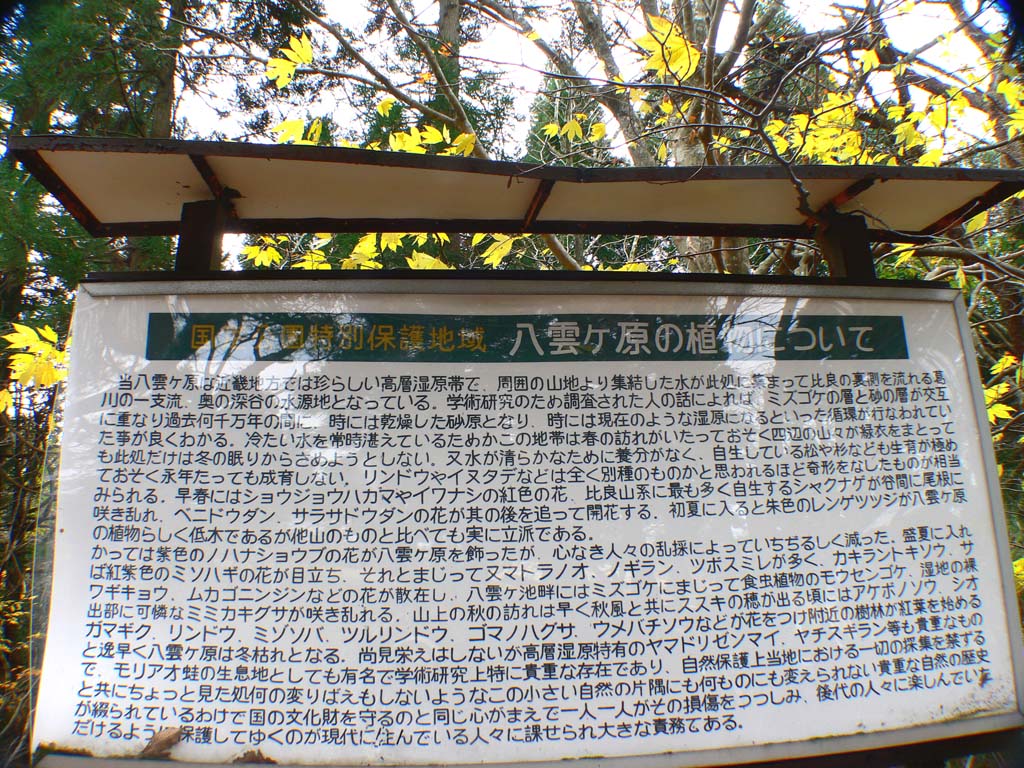 国定公園特別保護地域 八雲ヶ原の植物について
当八雲ヶ原は近畿地方では珍らしい高層湿原帯で、周囲の山地より集結した水が此処に集まって比良の裏側を流れる葛
川の一支流、奥の深谷の水源地となっている。学術研究のため調査された人の話によれば、ミズゴケの層と砂の層が交互
に重なり過去何千万年の間に、時には乾燥した砂原となり、時には現在のような湿原になるといった循環が行なわれてい
た事が良くわかる。冷たい水を常時湛えているためかこの地帯は春の訪れがいたっておそく四辺の山々が緑衣をまとって
も此処だけは冬の眠りからさめようとしない。又水が清らかなために養分がなく、自生している松や杉なども生育が極め
ておそく永年たっても成育しない。リンドウやイヌタデなどは全く別種のものかと思われるほど奇形をなしたものが相当
みられる。早春にはショウジョウハカマやイワナシの紅色の花、比良山系に最も多く自生するシャクナゲが谷間に尾根に
咲き乱れ、ベニドウダン、サラサドウダンの花が其の後を追って開花する、初夏に入ると朱色のレンゲツツジが八雲ヶ原
の植物らしく低木であるが他山のものと比べても実に立派である。
かっては紫色のノハナショウブの花が八雲ヶ原を飾ったが、心なき人々の乱採によっていちぢるしく減った、盛夏に入れ
ば紅紫色のミソハギの花が目立ち、それとまじってヌマトラノオ、ノギラン、ツボスミレが多く、カキラントキソウ、サ
ワギキョウ、ムカゴニンジンなどの花が散在し、八雲ヶ池畔にはミズゴケにまじって食虫植物のモウセンゴケ、湿地の裸
出部に可憐なミミカキグサが咲き乱れる。山上の秋の訪れは早く秋風と共にススキの穂が出る頃にはアケボノソウ、シオ
ガマギク、リンドウ、ミゾソバ、ツルリンドウ、ゴマノハグサ、ウメバチソウなどが花をつけ附近の樹林が紅葉を始める
と逸早く八雲ヶ原は冬枯れとなる。尚見栄えはしないが高層湿原特有のヤマドリゼンマイ、ヤチスギラン等も貴重なもの
で、モリアオ蛙の生息地としても有名で学術研究上特に貴重な存在であり、自然保護上当地における一切の採集を禁ずる
と共にちょっと見た処何の変りばえもしないようなこの小さい自然の片隅にも何ものにも変えられない貴重な自然の歴史
が綴られているわけで国の文化財を守るのと同じ心がまえで一人一人がその損傷をつつしみ、後代の人々に楽しんでいた
だけるように保護してゆくのが現代に住んでいる人々に課せられ大きな責務である。